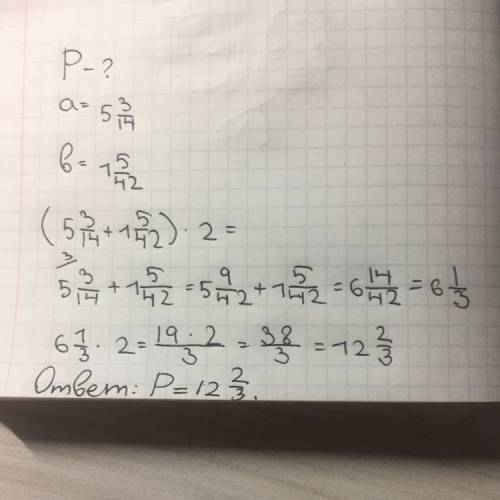 P - ?
a = 5 3/14
b = 1 5/42
(5 3/14 + 1 5/42) · 2 =
5 3/14 ³⁄ + 1 5/42 = 5 9/42 + 1 5/42 = 6 14/42 = 6 1/3
6 1/3 · 2 = 19 · 2/3 = 38/3 = 12 2/3
Ответ: P = 12 2/3.